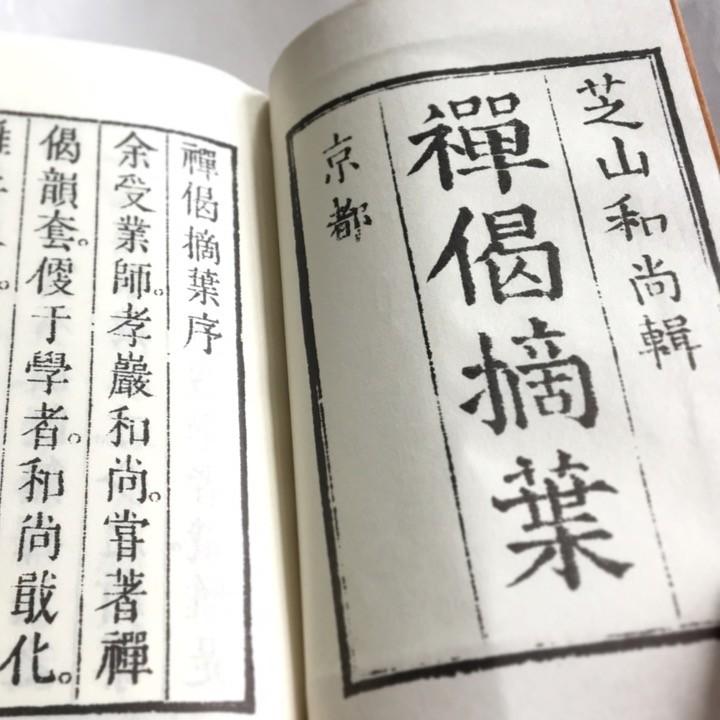 芝山和尚輯
禪偈摘葉
京都
禪偈摘葉序
余受業師。孝嚴和尚。甞著禪
偈韻套。傻于學者。和尚戢化。